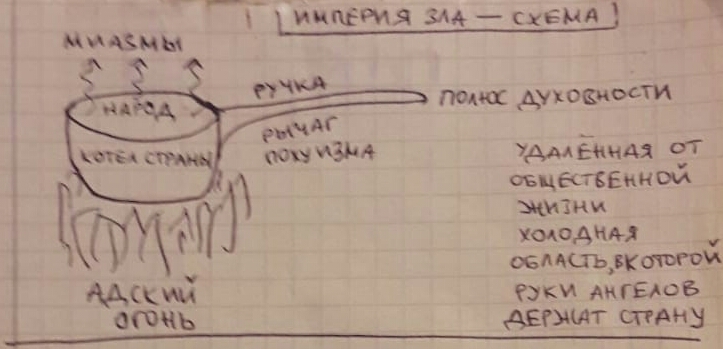 ИМПЕРИЯ ЗЛА — СХЕМА
МИАЗМЫ
НАРОД
КОТЕЛ СТРАНЫ
РУЧКА
РЫЧАГ
ПОХУИЗМА
ПОЛЮС ДУХОВНОСТИ
УДАЛЁННАЯ ОТ
ОБЩЕСТВЕННОЙ
ЖИЗНИ
ХОЛОДНАЯ
ОБЛАСТЬ, В КОТОРОЙ
РУКИ АНГЕЛОВ
ДЕРЖАТ СТРАНУ
АДСКИЙ
ОГОНЬ